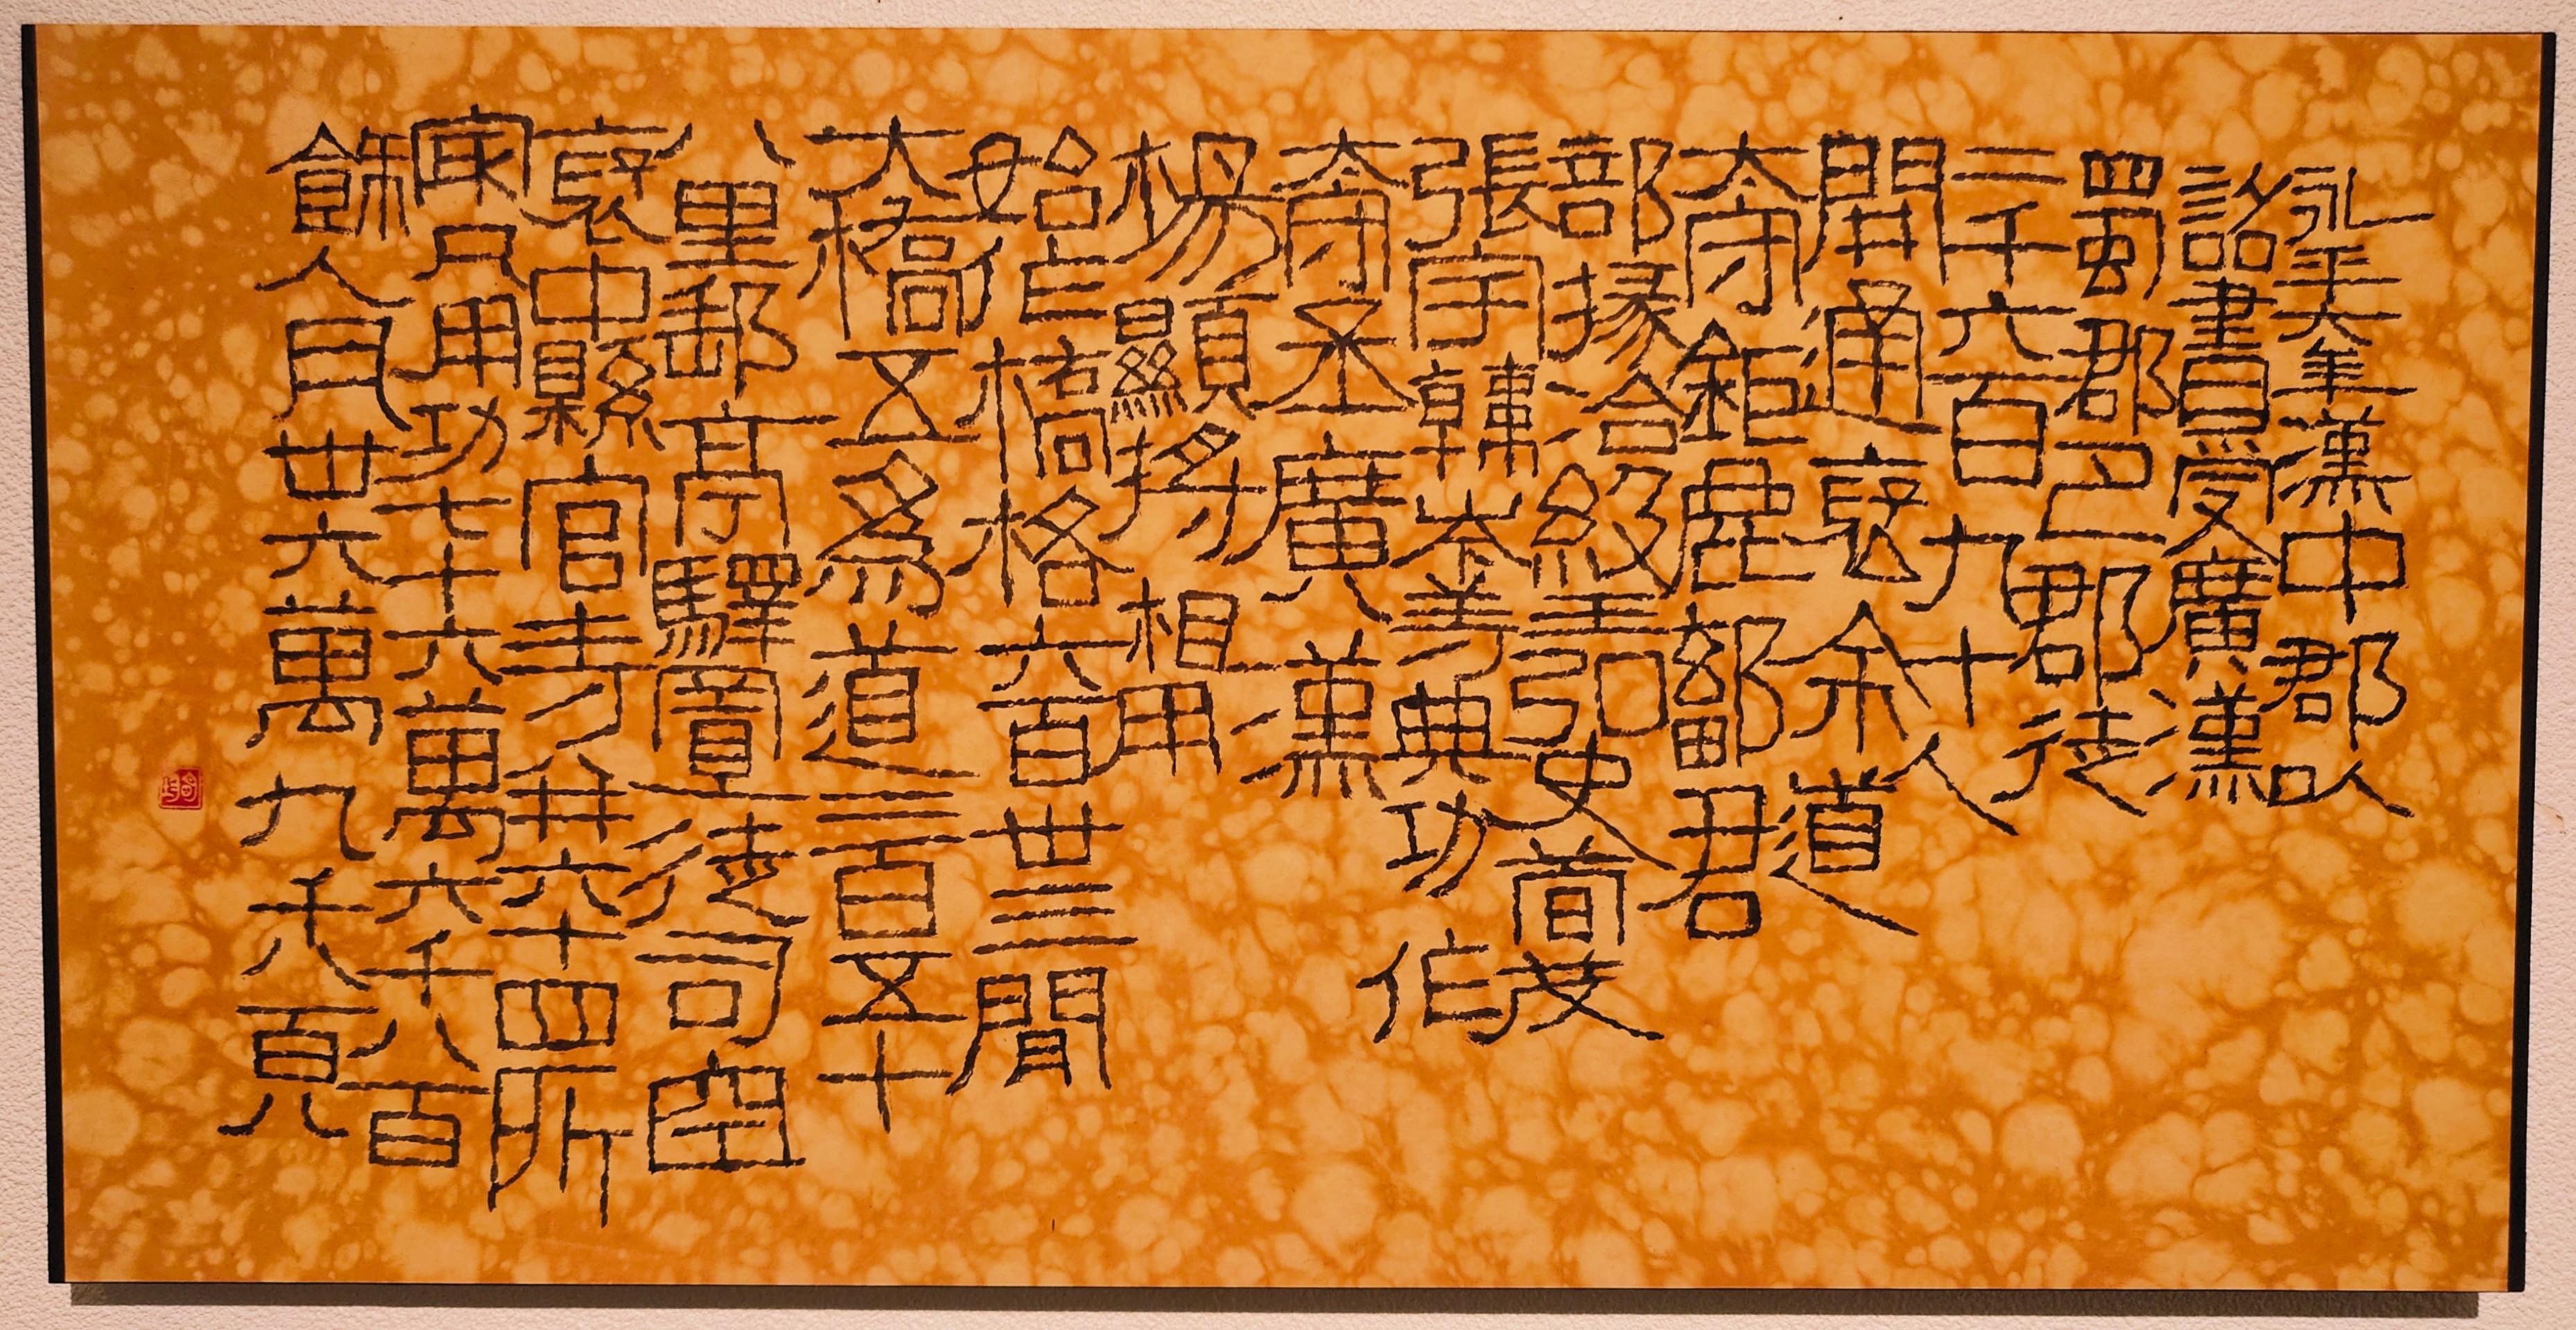 永平六年漢中郡以
詔書受廣漢
蜀郡巴郡徒
二千六百九十人
開通褒余道
太守鉅鹿鄐君
部掾冶級王弘史荀茂
張宇韓岑等典功作
太守丞廣漢
楊顯將相用
始作橋格六百卅三間
大橋五為道二百五十
八里郵亭驛置徒司空
褒中縣官寺并六十四所
冣凡用功七十六萬六千八百
餘人瓦卅六萬九千八百八